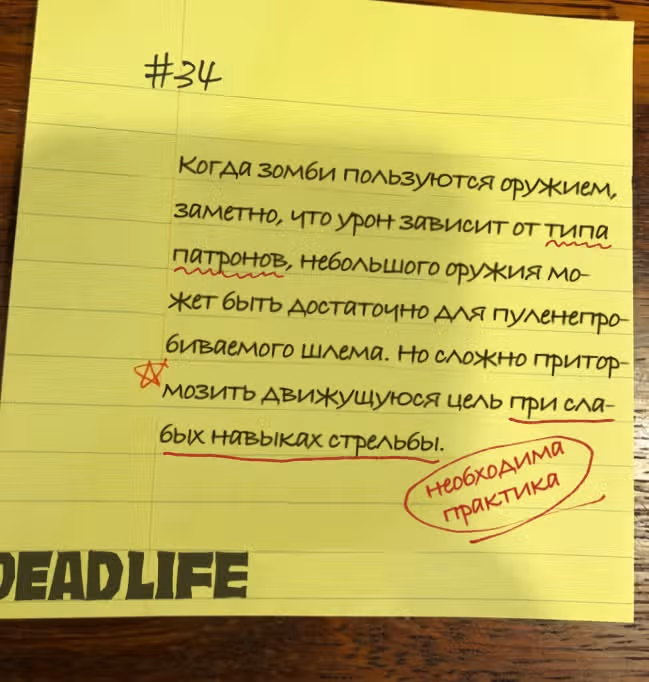 #34
Когда зомби пользуются оружием,
заметно, что урон зависит от типа
патронов, небольшого оружия мо-
жет быть достаточно для пуленепро-
биваемого шлема. Но сложно притор-
мозить движущуюся цель при сла-
бых навыках стрельбы.
необходима
практика
DEADLIFE